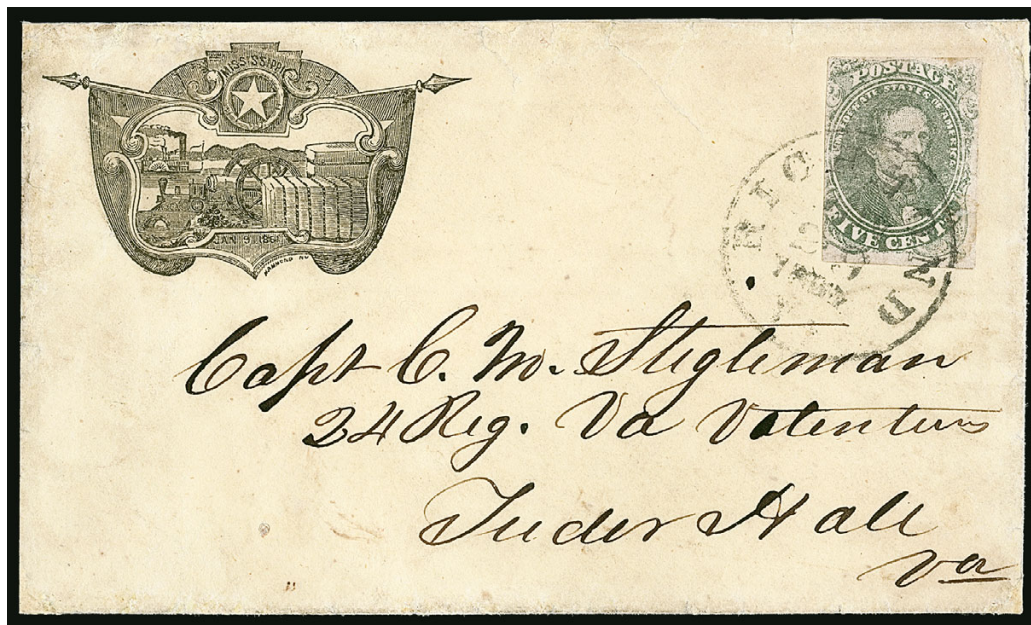 MISSISSIPPI
JAN 9 1861
POSTAGE
CONFEDERATE STATES OF AMERICA
FIVE CENTS
RICHMOND
Capt C. M. Stigleman
24 Reg. Va Volenteers
Tudor Hall
Va